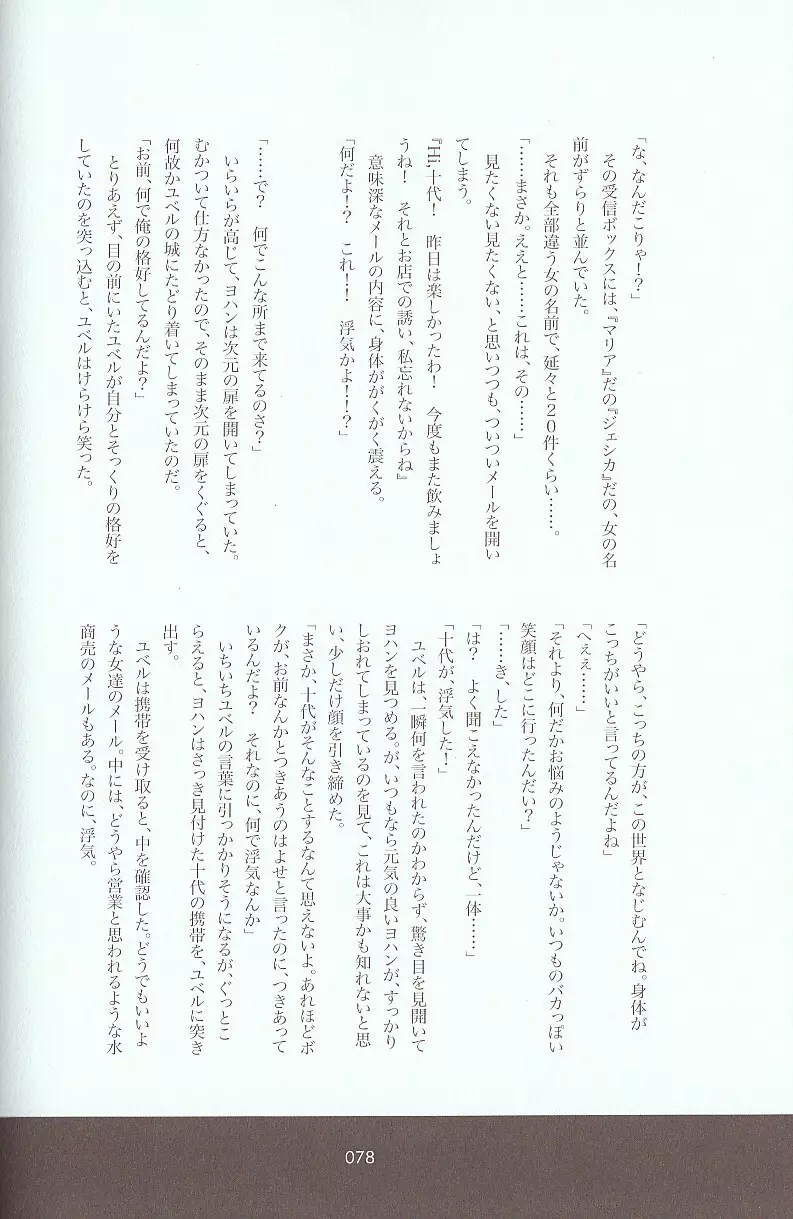 「な、なんだこりゃ!?」
　その受信ボックスには、『マリア』だの『ジェシカ』だの、女の名
前がずらりと並んでいた。
　それも全部違う女の名前で、延々と20件くらい……。
「……まさか。ええと……これは、その……」
　見たくない見たくない、と思いつつも、ついついメールを開い
てしまう。
『Hi,十代！　昨日は楽しかったわ！　今度もまた飲みましょ
うね！　それとお店での誘い、私忘れないからね』
　意味深なメールの内容に、身体ががくがく震える。
「何だよ!?　これ!!　浮気かよ!!?」
「……で？　何でこんな所まで来てるのさ？」
　いらいらが高じて、ヨハンは次元の扉を開いてしまっていた。
むかついて仕方なかったので、そのまま次元の扉をくぐると、
何故かユベルの城にたどり着いてしまっていたのだ。
「お前、何で俺の格好してるんだよ？」
　とりあえず、目の前にいたユベルが自分とそっくりの格好を
していたのを突っ込むと、ユベルはけらけら笑った。
「どうやら、こっちの方が、この世界となじむんでね。身体が
こっちがいいと言ってるんだよね」
「へぇぇ……」
「それより、何だかお悩みのようじゃないか。いつものバカっぽい
笑顔はどこに行ったんだい？」
「……き、した」
「は？　よく聞こえなかったんだけど、一体……」
「十代が、浮気した！」
　ユベルは、一瞬何を言われたのかわからず、驚き目を見開いて
ヨハンを見つめる。が、いつもなら元気の良いヨハンが、すっかり
しおれてしまっているのを見て、これは大事かも知れないと思
い、少しだけ顔を引き締めた。
「まさか、十代がそんなことするなんて思えないよ。あれほどボ
クが、お前なんかとつきあうのはよせと言ったのに、つきあって
いるんだよ？　それなのに、何で浮気なんか」
　いちいちユベルの言葉に引っかかりそうになるが、ぐっとこ
らえると、ヨハンはさっき見付けた十代の携帯を、ユベルに突き
出す。
　ユベルは携帯を受け取ると、中を確認した。どうでもいいよ
うな女達のメール。中には、どうやら営業と思われるような水
商売のメールもある。なのに、浮気。
078